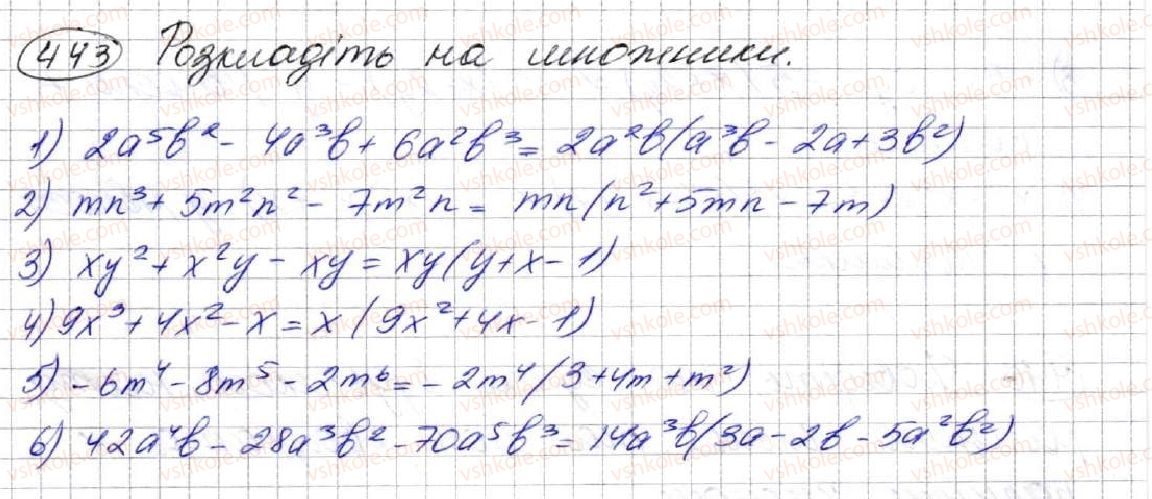 443 Розкладіть на множники.
1) 2a⁵b² - 4a³b + 6a²b³ = 2a²b(a³b - 2a + 3b²)
2) mn³ + 5m²n² - 7m²n = mn(n² + 5mn - 7m)
3) xy² + x²y - xy = xy(y + x - 1)
4) 9x³ + 4x² - x = x(9x² + 4x - 1)
5) -6m⁴ - 8m⁵ - 2m⁶ = -2m⁴(3 + 4m + m²)
6) 42a⁴b - 28a³b² - 70a⁵b³ = 14a³b(3a - 2b - 5a²b²)